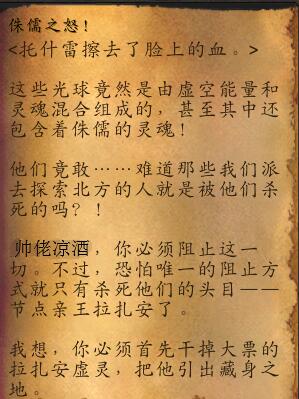 侏儒之怒！
<托什雷擦去了脸上的血。>
这些光球竟然是由虚空能量和
灵魂混合组成的，甚至其中还
包含着侏儒的灵魂！
他们竟敢……难道那些我们派
去探索北方的人就是被他们杀
死的吗？！
帅佬凉酒，你必须阻止这一
切。不过，恐怕唯一的阻止方
式就只有杀死他们的头目——
节点亲王拉扎安了。
我想，你必须首先干掉大票的
拉扎安虚灵，把他引出藏身之
地。